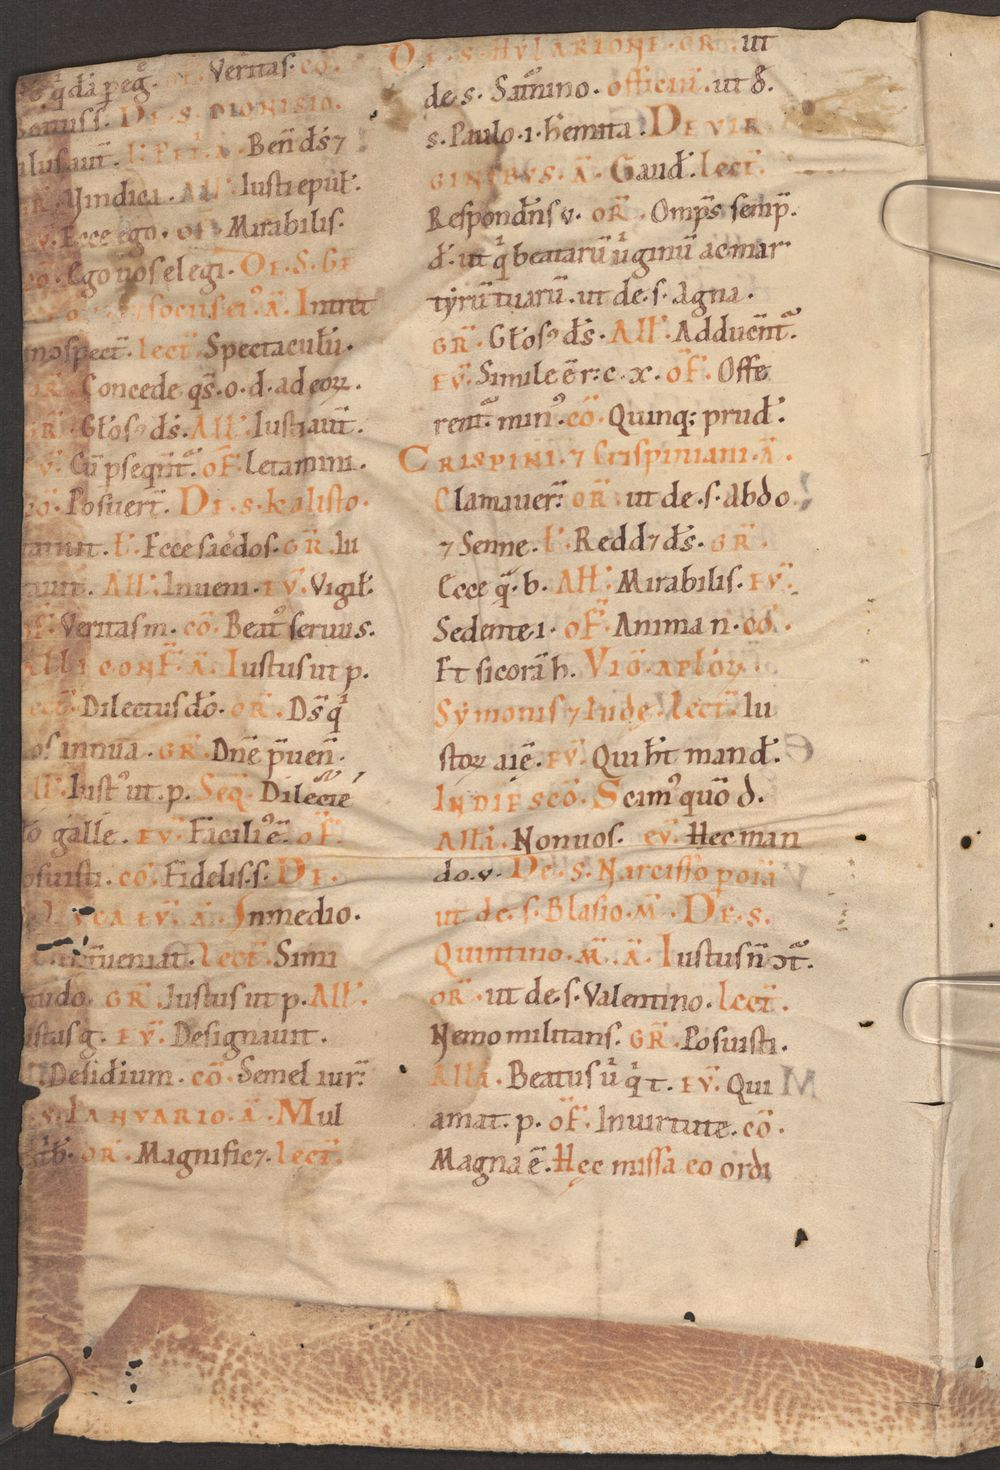 q̇ dā peḡ. OF. Veritas. co̅.
DE. S. DIONISIO.
Ben̄ dṡ ⁊
GR̄. Vindica. All'. Iusti epul'.
EV̄. Ecce ego. OF. Mirabilis.
co̅. Ego uos elegi. DE. S. GE
socus eiꝰ. A̅. Intret
in ospect̄. lect̄. Spectaculū.
OR̄. Concede qs̄. o. d. ad eoꝝ.
GR̄. Gl'osꝰ dṡ. All'. Iusti aut̄.
EV̄. Cū pseqn̄t᷑. OF̄. letamini.
co̅. Posuer̄t. DE. S. Kalisto.
L'. Ecce sac̄dos. GR̄. Iu
All'. Inueni. EV̄. Vigil'.
OF̄. Veritas m. co̅. Beatꝰ seruus.
GALLI CONF̄. A̅. Iustus ut p.
lect̄. Dilectus do̅. OR̄. Ds̄ q̇
nos innua. GR̄. Dn̄e p̄uen̄.
All'. Iustꝰ ut. p. Seq̄. Dilecte
do galle. EV̄. Faciliꝰ ē. OF̄.
Posuisti. co̅. Fidelis. s. DE.
LVCA EV̄. A̅. In medio.
lect̄. Simi
tudo. GR̄. Iustus ut p. All'.
Iustus g. EV̄. Designauit.
Desidium. co̅. Semel iur̄.
S. IANVARIO. A̅. Mul
OR̄. Magnific⁊. lect̄.
DE. S. HYLARIONE. GR̄. ut
de. s. Sat᷑nino. officiū. ut &.
s. Paulo. 1. h̄emita. DE VIR
GINIBVS. A̅. Gaud'. lect̄.
Respondn̄s v. OR̄. Omp̄s semp̄.
d'. ut q̇ beatarū u̇ginū ac mar
tyrū tuarū. ut de. s. Agna.
GR̄. Gl'osꝰ dṡ. All'. Adducēnt᷑.
EV̄. Simile ē r: c. x. OF̄. Offe
rent᷑ minꝰ. co̅. Quinq; prud'.
CRISPINI. ⁊ Crispiniani. A̅.
Clamauer̄. OR̄. ut de. s. Abdo
⁊ Senne. L'. Redd⁊ dṡ. GR̄.
Ecce q̄. b. All'. Mirabilis. EV̄.
Sedente. i. OF̄. Anima n. co̅.
Et si corā h. Vīg. aplōꝝ
Symonis ⁊ Iude. lect̄. Iu
stoꝝ aīe. EV̄. Qui h't mand'.
IN DIE SCO̅. Scimꝰ quo̅ d.
Alla̅. Non uos. EV̄. Hec man
do. v. DE. S. Narcisso p oīa
ut de. s. Blasio. M̄. DE. S.
Quintino. M̄. A̅. Iustus n̄ ↄt᷑.
OR̄. ut de. s. Valentino. lect̄.
Nemo militans. GR̄. Posuisti.
Alla̅. Beatus u̇ q̇ t. EV̄. Qui
amat. p. OF̄. In uirtute. co̅.
Magna ē. Hęc missa eo ordi